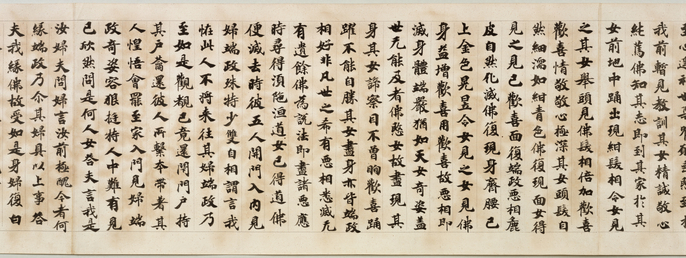 我前暫見教訓其女精誠敬心
純篤佛知其志即到其家於其
女前地中踊出現紺髮相令女見
之其女舉頭見佛髮相倍加歡喜
歡喜情敬敬心極深其女頭髮自
然細濡如紺青色佛復現面女得
見之見已歡喜面復端政惡相麁
皮自然化滅佛復現身齊腰已
上金色晃昱令女見之女見佛
身益增歡喜用歡喜故惡相即
滅身體端嚴猶如天女奇姿蓋
世无能及者佛愍女故盡現其
身其女諦察目不曾眴歡喜踊
躍不能自勝其女盡身亦皆端政
相好非凡世之希有惡相悉滅无
有遺餘佛為說法即盡諸惡應
時尋得須陀洹道女已得道佛
便滅去時彼五人開門入內見
婦端政殊特少雙自相謂言我
恠此人不將來往其婦端政乃
至如是觀覩已竟還閇門戶持
其戶鑰還彼人所繫本帶著其
人惺悟會罷至家入門見婦端
政奇姿容狠挺特人中難有見
已欣然問是何人女答夫言我是
汝婦夫問婦言汝前極醜今者何
緣端政乃尒其婦具以上事答
夫我緣佛故受如是身婦復白